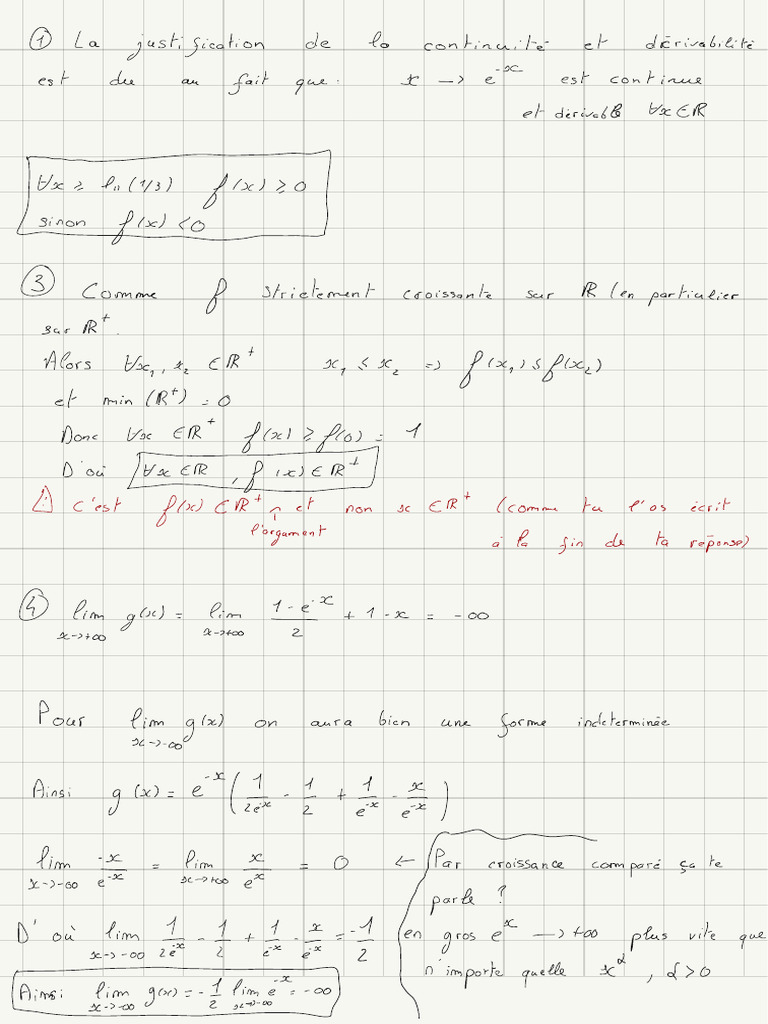 ① La justification de la continuité et dérivabilité
est du au fait que: x → e^{-x} est continue
et dérivable ∀x∈ℝ
∀x ≥ ln(1/3) f(x) ≥ 0
sinon f(x) < 0
③ Comme f strictement croissante sur ℝ (en particulier
sur ℝ⁺.
Alors ∀x₁, x₂ ∈ ℝ⁺ x₁ ≤ x₂ => f(x₁) ≤ f(x₂)
et min (ℝ⁺) = 0
Donc ∀x ∈ ℝ⁺ f(x) ≥ f(0) = 1
D'où ∀x ∈ ℝ, f(x) ∈ ℝ⁺
⚠ c'est f(x) ∈ ℝ⁺ et non x ∈ ℝ⁺ (comme tu l'as écrit
l'argument à la fin de ta réponse)
④ lim_{x→+∞} g(x) = lim_{x→+∞} \frac{1-e^{-x}}{2} + 1 - x = -∞
Pour lim_{x→-∞} g(x) on aura bien une forme indeterminée
Ainsi g(x) = e^{-x} ( \frac{1}{2e^{-x}} - \frac{1}{2} + \frac{1}{e^{-x}} - \frac{x}{e^{-x}} )
lim_{x→-∞} \frac{-x}{e^{-x}} = lim_{x→+∞} \frac{x}{e^{x}} = 0 ← Par croissance comparé ça te
parle ?
D'où lim_{x→-∞} \frac{1}{2e^{-x}} - \frac{1}{2} + \frac{1}{e^{-x}} - \frac{x}{e^{-x}} = \frac{-1}{2}
en gros e^{x} → +∞ plus vite que
n'importe quelle x^{α}, α > 0
Ainsi lim_{x→-∞} g(x) = -\frac{1}{2} lim_{x→-∞} e^{-x} = -∞